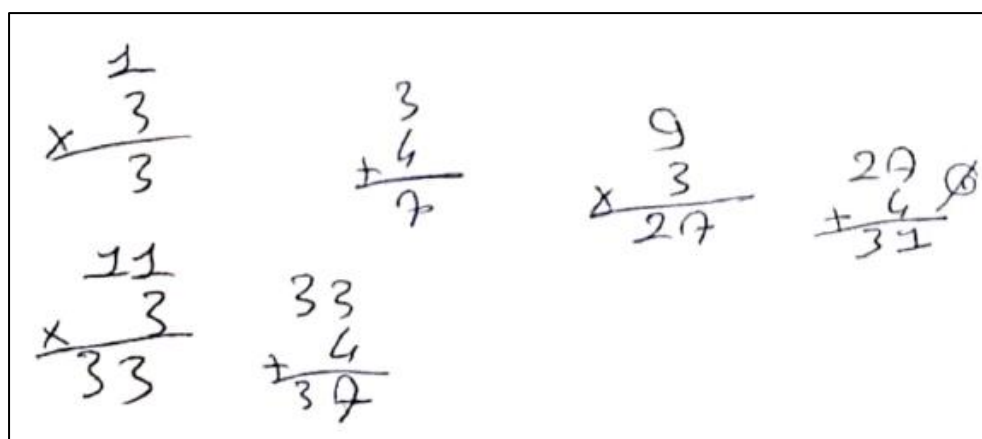 1
× 3
3
3
+ 4
7
9
× 3
27
27
+ 4
31
11
× 3
33
33
+ 4
37